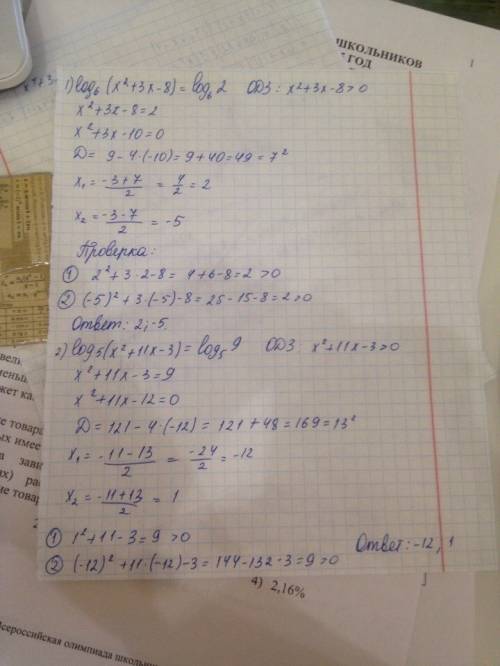 ШКОЛЬНИКОВ
ГОД
1) log₆(x²+3x-8) = log₆2 ОДЗ: x²+3x-8>0
x²+3x-8=2
x²+3x-10=0
D= 9-4·(-10)=9+40=49=7²
x₁= -3+7/2 = 4/2 = 2
x₂= -3-7/2 = -5
Проверка:
① 2²+3·2-8= 4+6-8=2>0
② (-5)²+3·(-5)-8=25-15-8=2>0
Ответ: 2; -5.
2) log₅(x²+11x-3)=log₅9 ОДЗ: x²+11x-3>0
x²+11x-3=9
x²+11x-12=0
D=121-4·(-12)=121+48=169=13²
x₁= -11-13/2 = -24/2 = -12
x₂= -11+13/2 = 1
① 1²+11-3=9>0
Ответ: -12; 1
② (-12)²+11·(-12)-3=144-132-3=9>0
4) 2,16%
российская олимпиада школьни